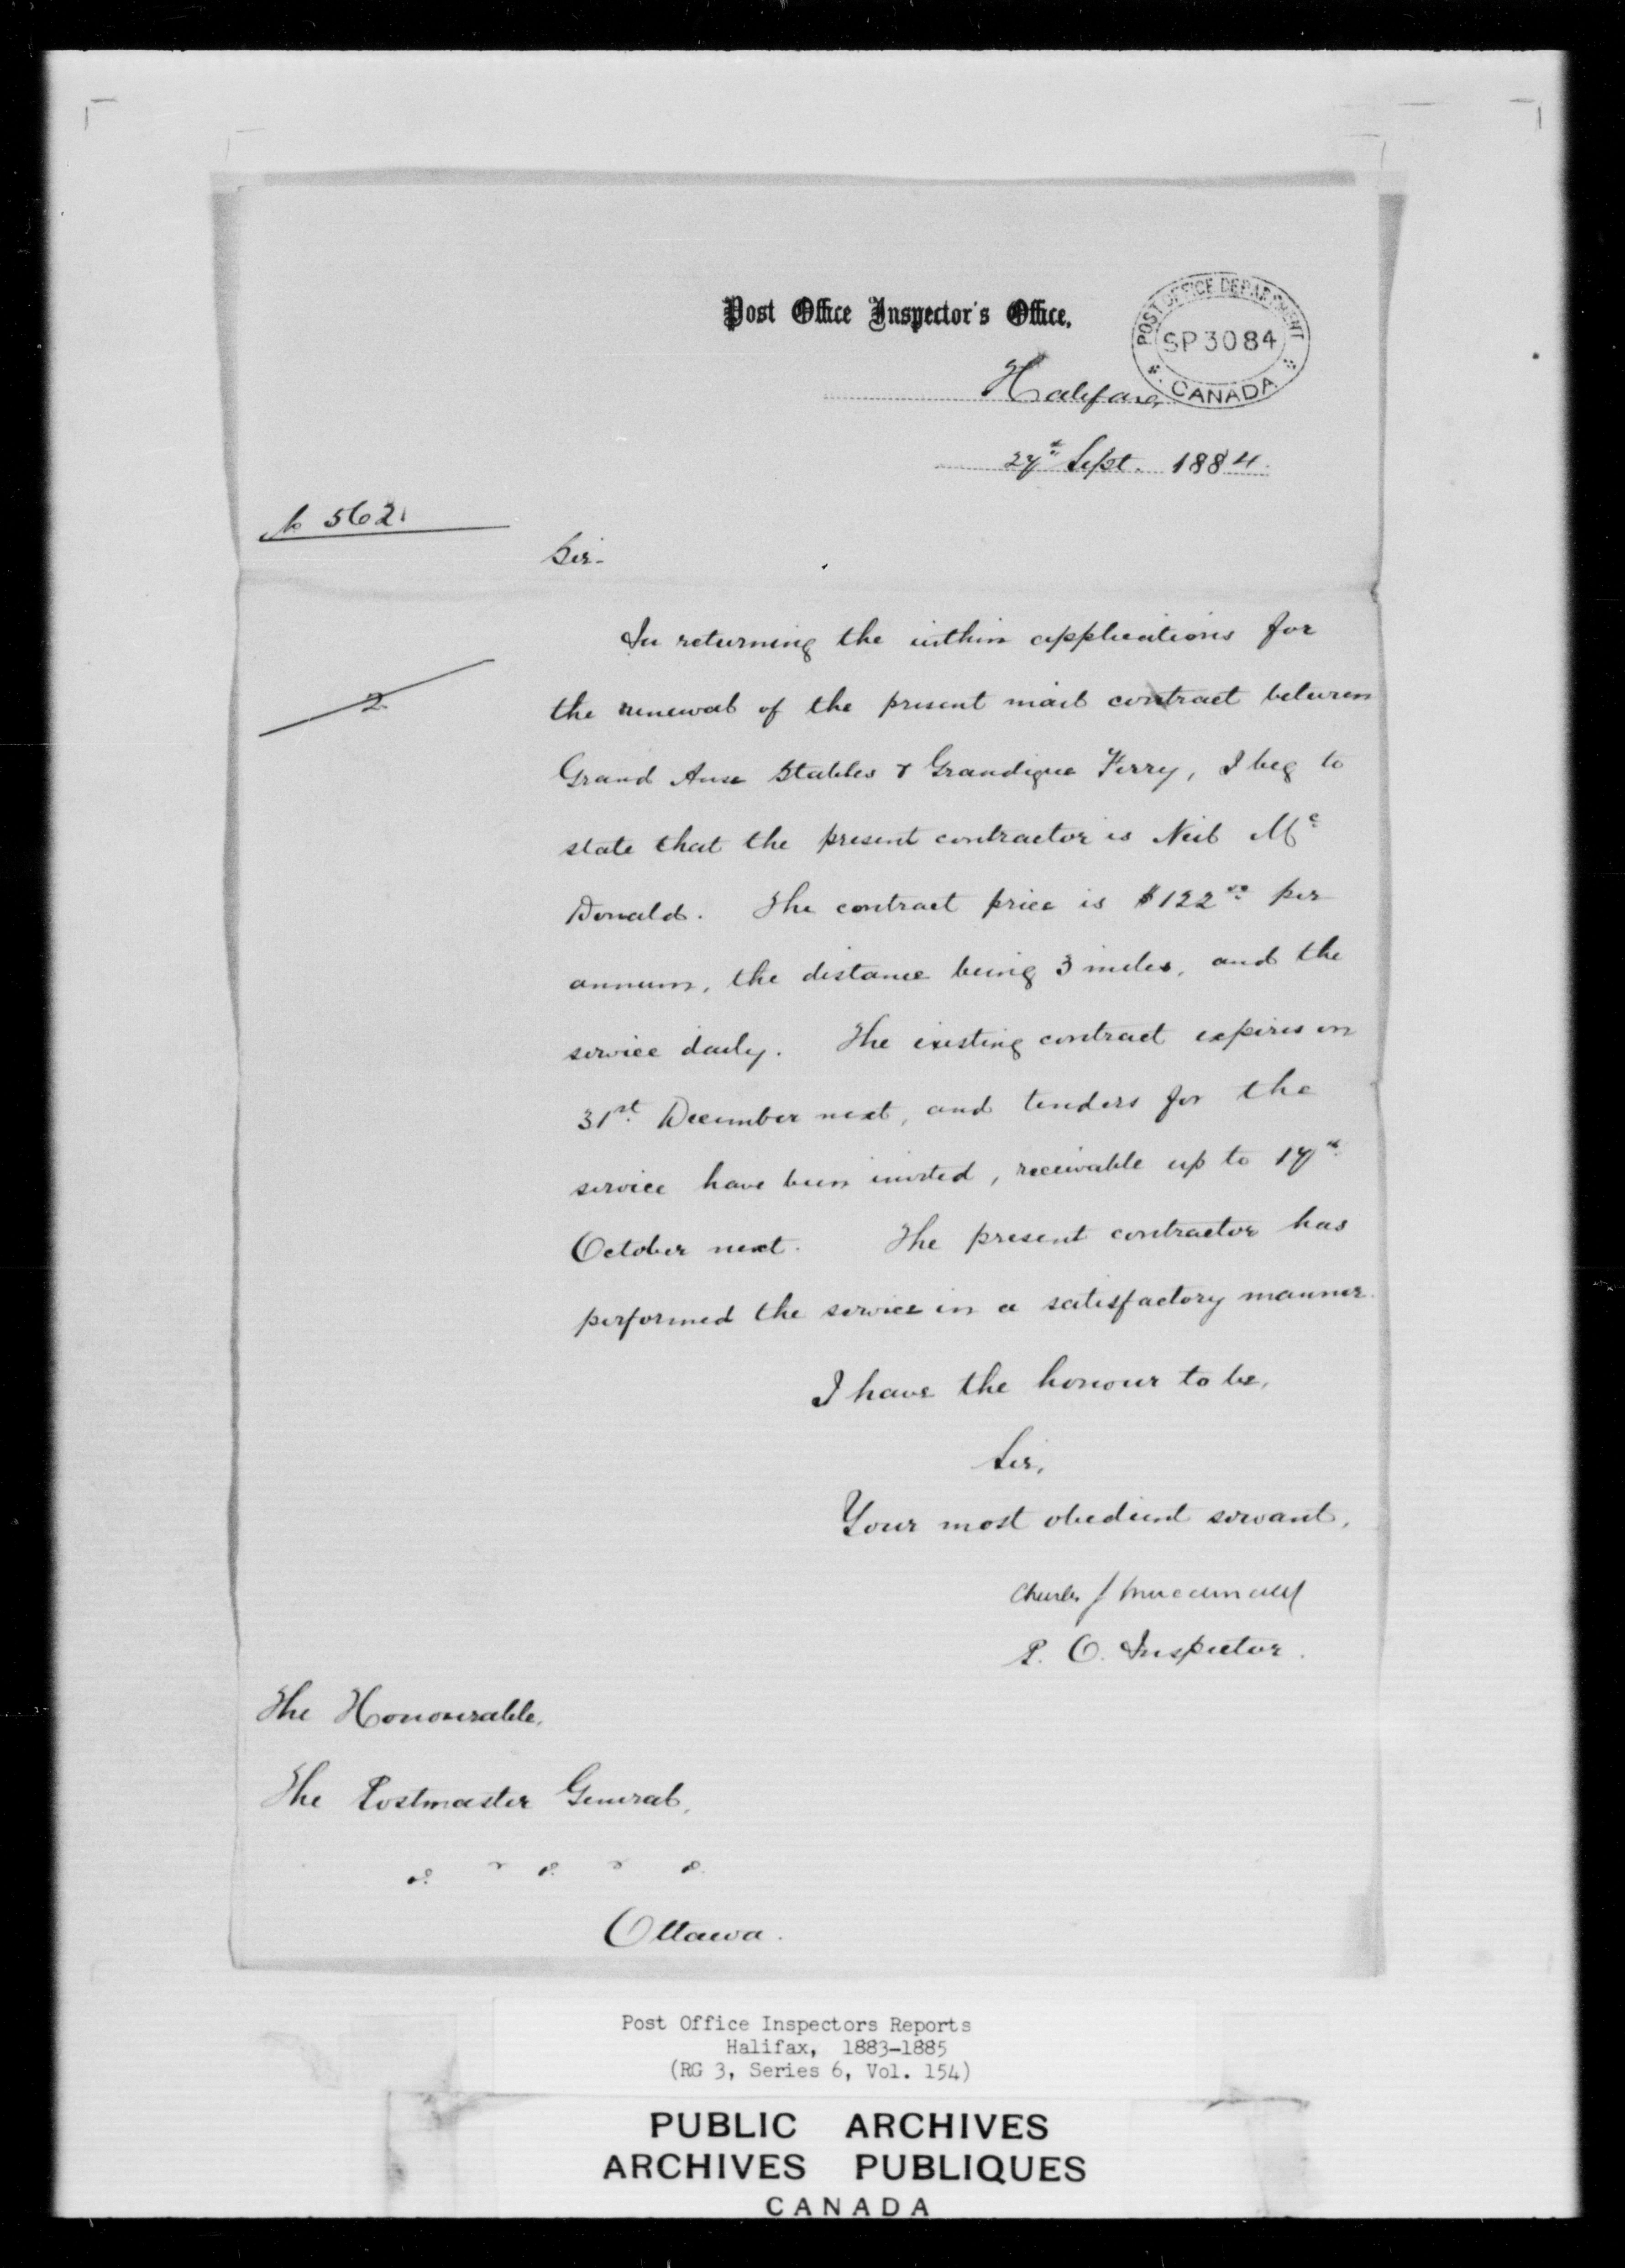 Post Office Inspector's Office,
POST OFFICE DEPARTMENT
SP 30 84
CANADA
Halifax,
27th Sept. 1884.
No 562
Sir-
2
In returning the within applications for
the renewal of the present mail contract between
Grand Anse Stables & Grandique Ferry, I beg to
state that the present contractor is Neil Mc
Donald. The contract price is $122.00 per
annum, the distance being 3 miles, and the
service daily. The existing contract expires on
31st December next, and tenders for the
service have been invited, receivable up to 17th
October next. The present contractor has
performed the service in a satisfactory manner.
I have the honour to be,
Sir,
Your most obedient servant,
Charles J Macdonald
P. O. Inspector.
The Honourable,
The Postmaster General,
Ottawa.
Post Office Inspectors Reports
Halifax, 1883-1885
(RG 3, Series 6, Vol. 154)
PUBLIC ARCHIVES
ARCHIVES PUBLIQUES
CANADA